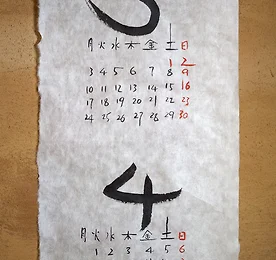 3
月 火 水 木 金 土 日
1 2
3 4 5 6 7 8 9
10 11 12 13 14 15 16
17 18 19 20 21 22 23
24 25 26 27 28 29 30
4
月 火 水 木 金 土 日
1 2 3 4 5 6